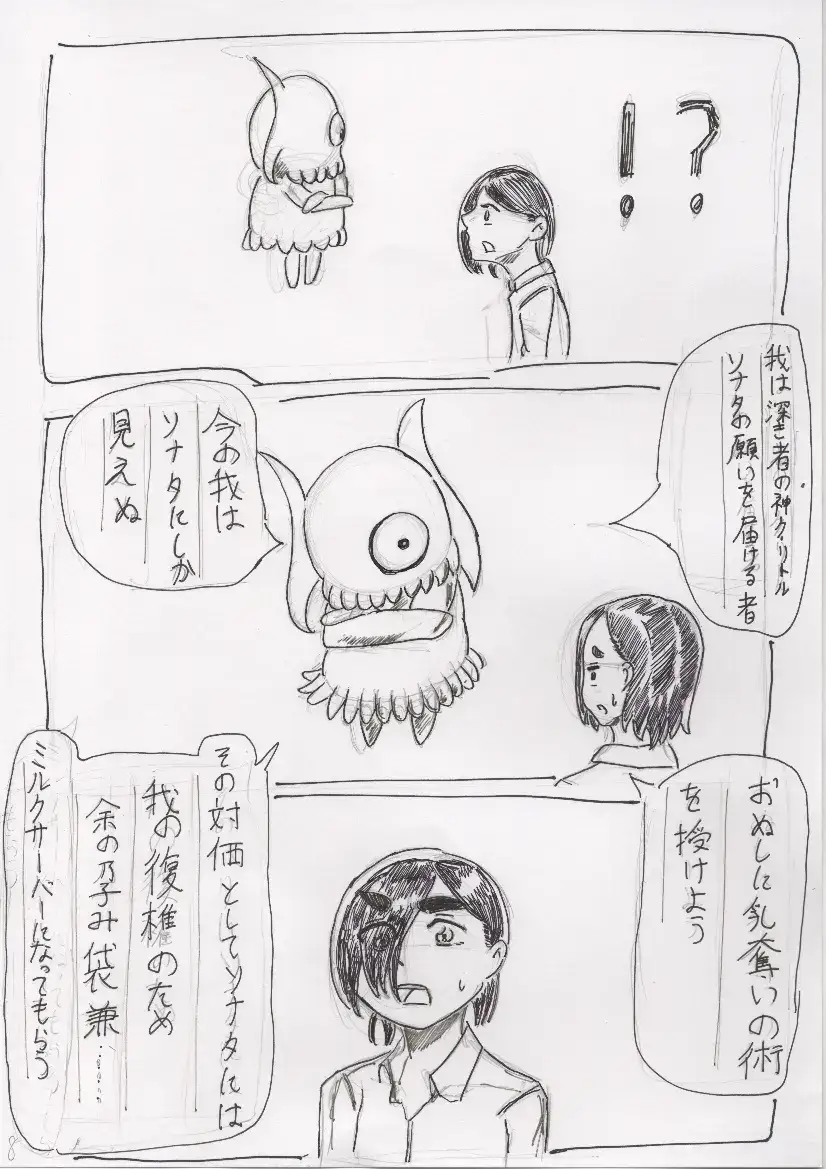 !?
我は深き者の神クリトル
ソナタの願いを届ける者
今の我は
ソナタにしか
見えぬ
おぬしに乳奪いの術
を授けよう
その対価としてソナタには
我の復権のため
余の孕み袋兼……
ミルクサーバーになってもらう
8